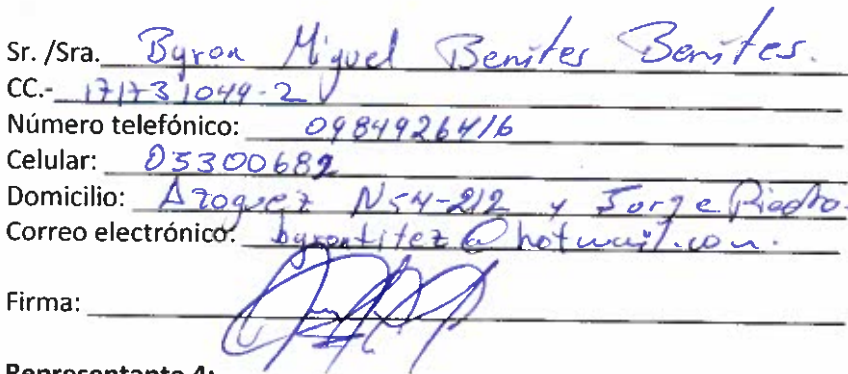 Sr. /Sra. Byron Miguel Benítes Benítes.
CC.- 171731049-2
Número telefónico: 0984926416
Celular: 03300682
Domicilio: Azoguez N54-212 y Jorge Piedra.
Correo electrónico: byrontitez@hotmail.com.
Firma:
Representante 4: